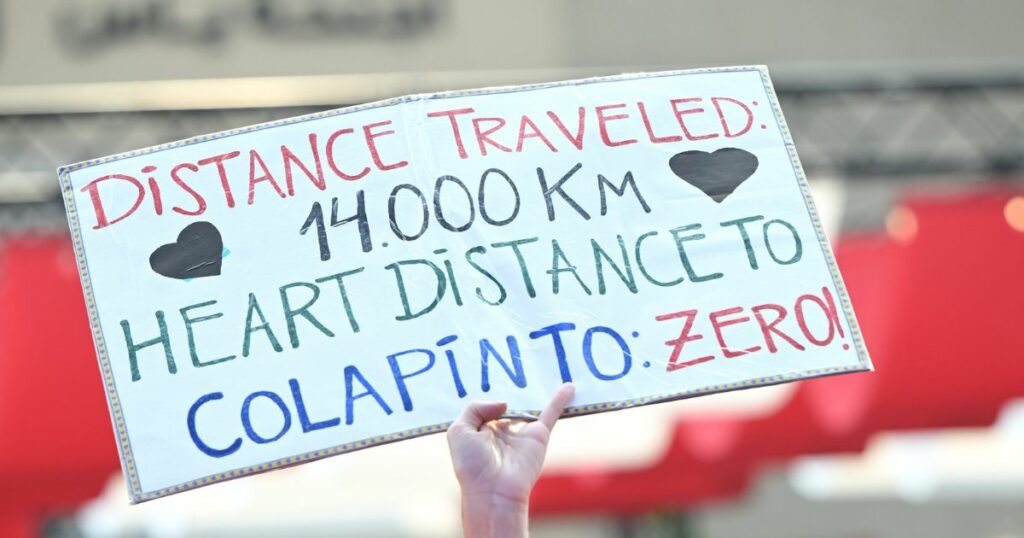 DISTANCE TRAVELED:
14.000 KM
HEART DISTANCE TO
COLAPINTO: ZERO!